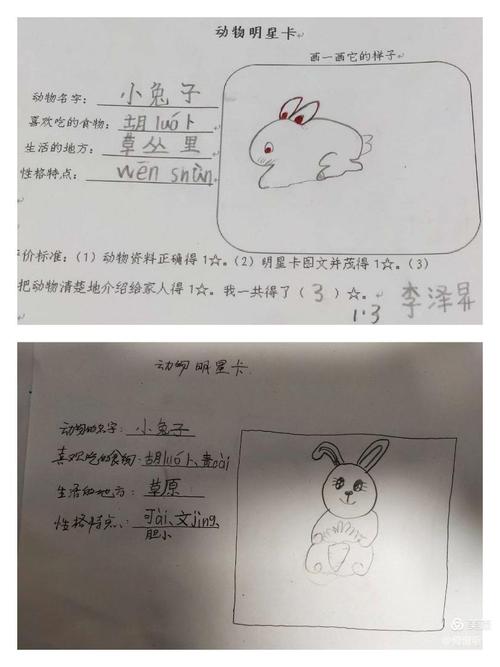 动物明星卡
画一画它的样子
动物名字：小兔子
喜欢吃的食物：胡luó卜
生活的地方：草丛里
性格特点：wēn shùn
价标准：（1）动物资料正确得1☆。（2）明星卡图文并茂得1☆。（3）
把动物清楚地介绍给家人得1☆。我一共得了（3）☆。
1·3 李泽昇
动物明星卡
动物的名字：小兔子
喜欢吃的食物：胡luó卜、青cài
生活的地方：草原
性格特点：可ài、文jìng、
胆小
美篇